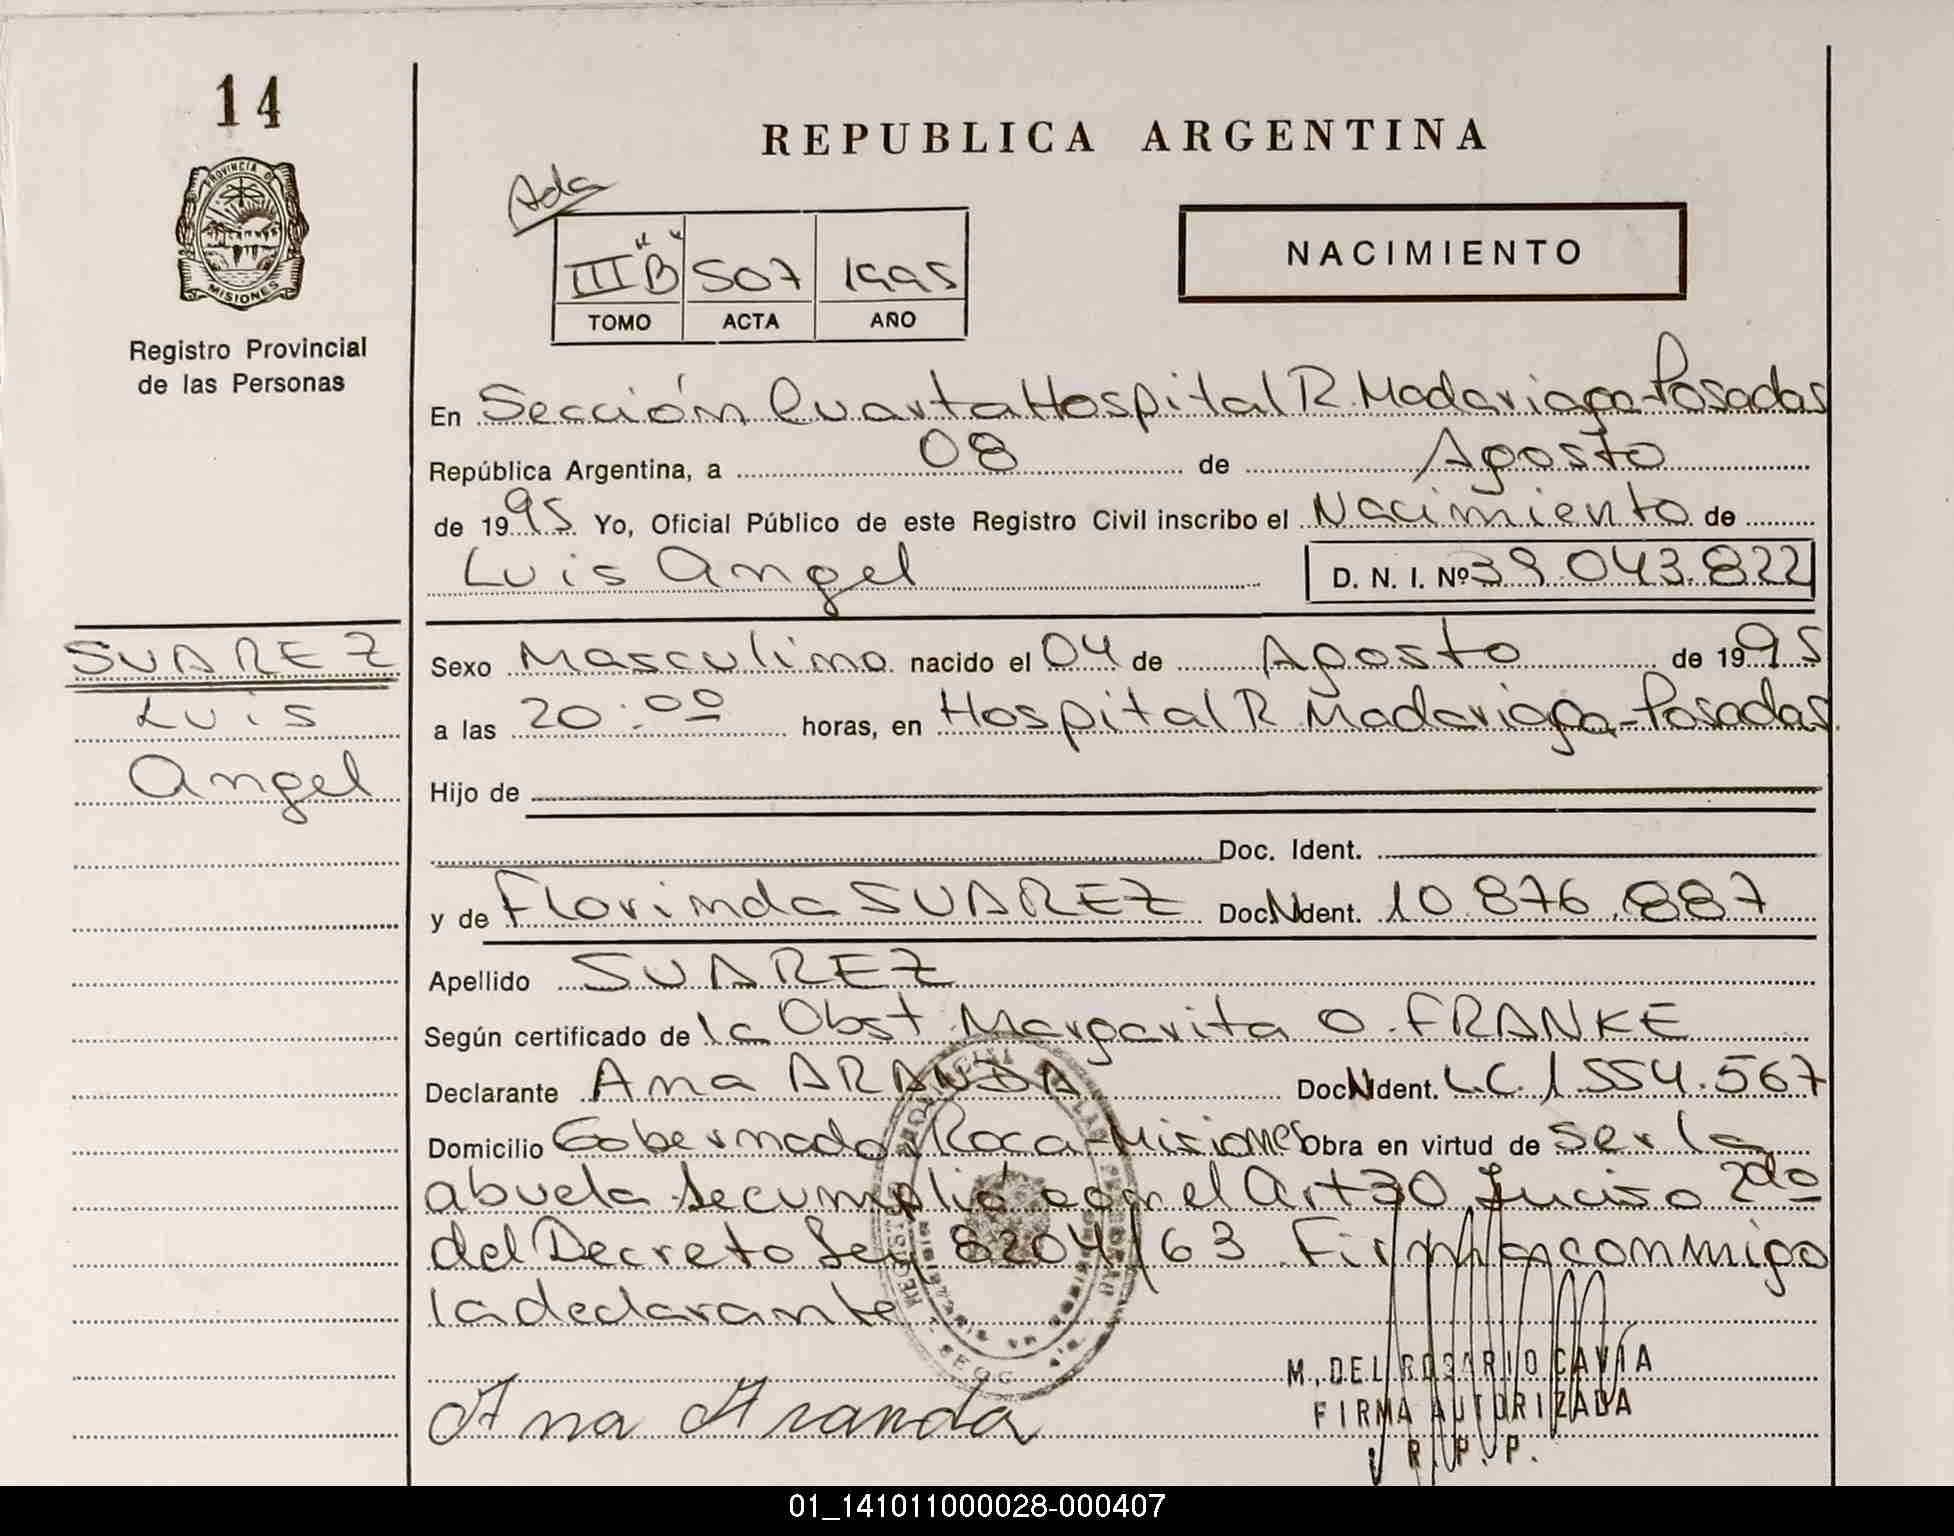 14
PROVINCIA DE
MISIONES
Registro Provincial
de las Personas
REPUBLICA ARGENTINA
Ada
III "B" 507 1995
TOMO ACTA AÑO
NACIMIENTO
En Sección Cuarta Hospital R. Madariaga-Posadas
República Argentina, a 08 de Agosto
de 1995 Yo, Oficial Público de este Registro Civil inscribo el Nacimiento de
Luis Angel D. N. I. Nº 39.043.822
SUAREZ
Luis
Angel
Sexo Masculino nacido el 04 de Agosto de 1995
a las 20:00 horas, en Hospital R. Madariaga-Posadas
Hijo de
Doc. Ident.
y de Florinda SUAREZ Doc.N Ident. 10.876.887
Apellido SUAREZ
Según certificado de la Obst. Margarita O. FRANKE
Declarante Ana ARANDA Doc.N Ident. L.C. 1.554.567
Domicilio Gobernador Roca-Misiones Obra en virtud de ser la
abuela. Se cumplió con el Art 30 Inciso 2do
del Decreto Ley 8204/63. Firma conmigo
la declarante
Ana Aranda
M. DEL ROSARIO CAVIA
FIRMA AUTORIZADA
R. P. P.
01_141011000028-000407